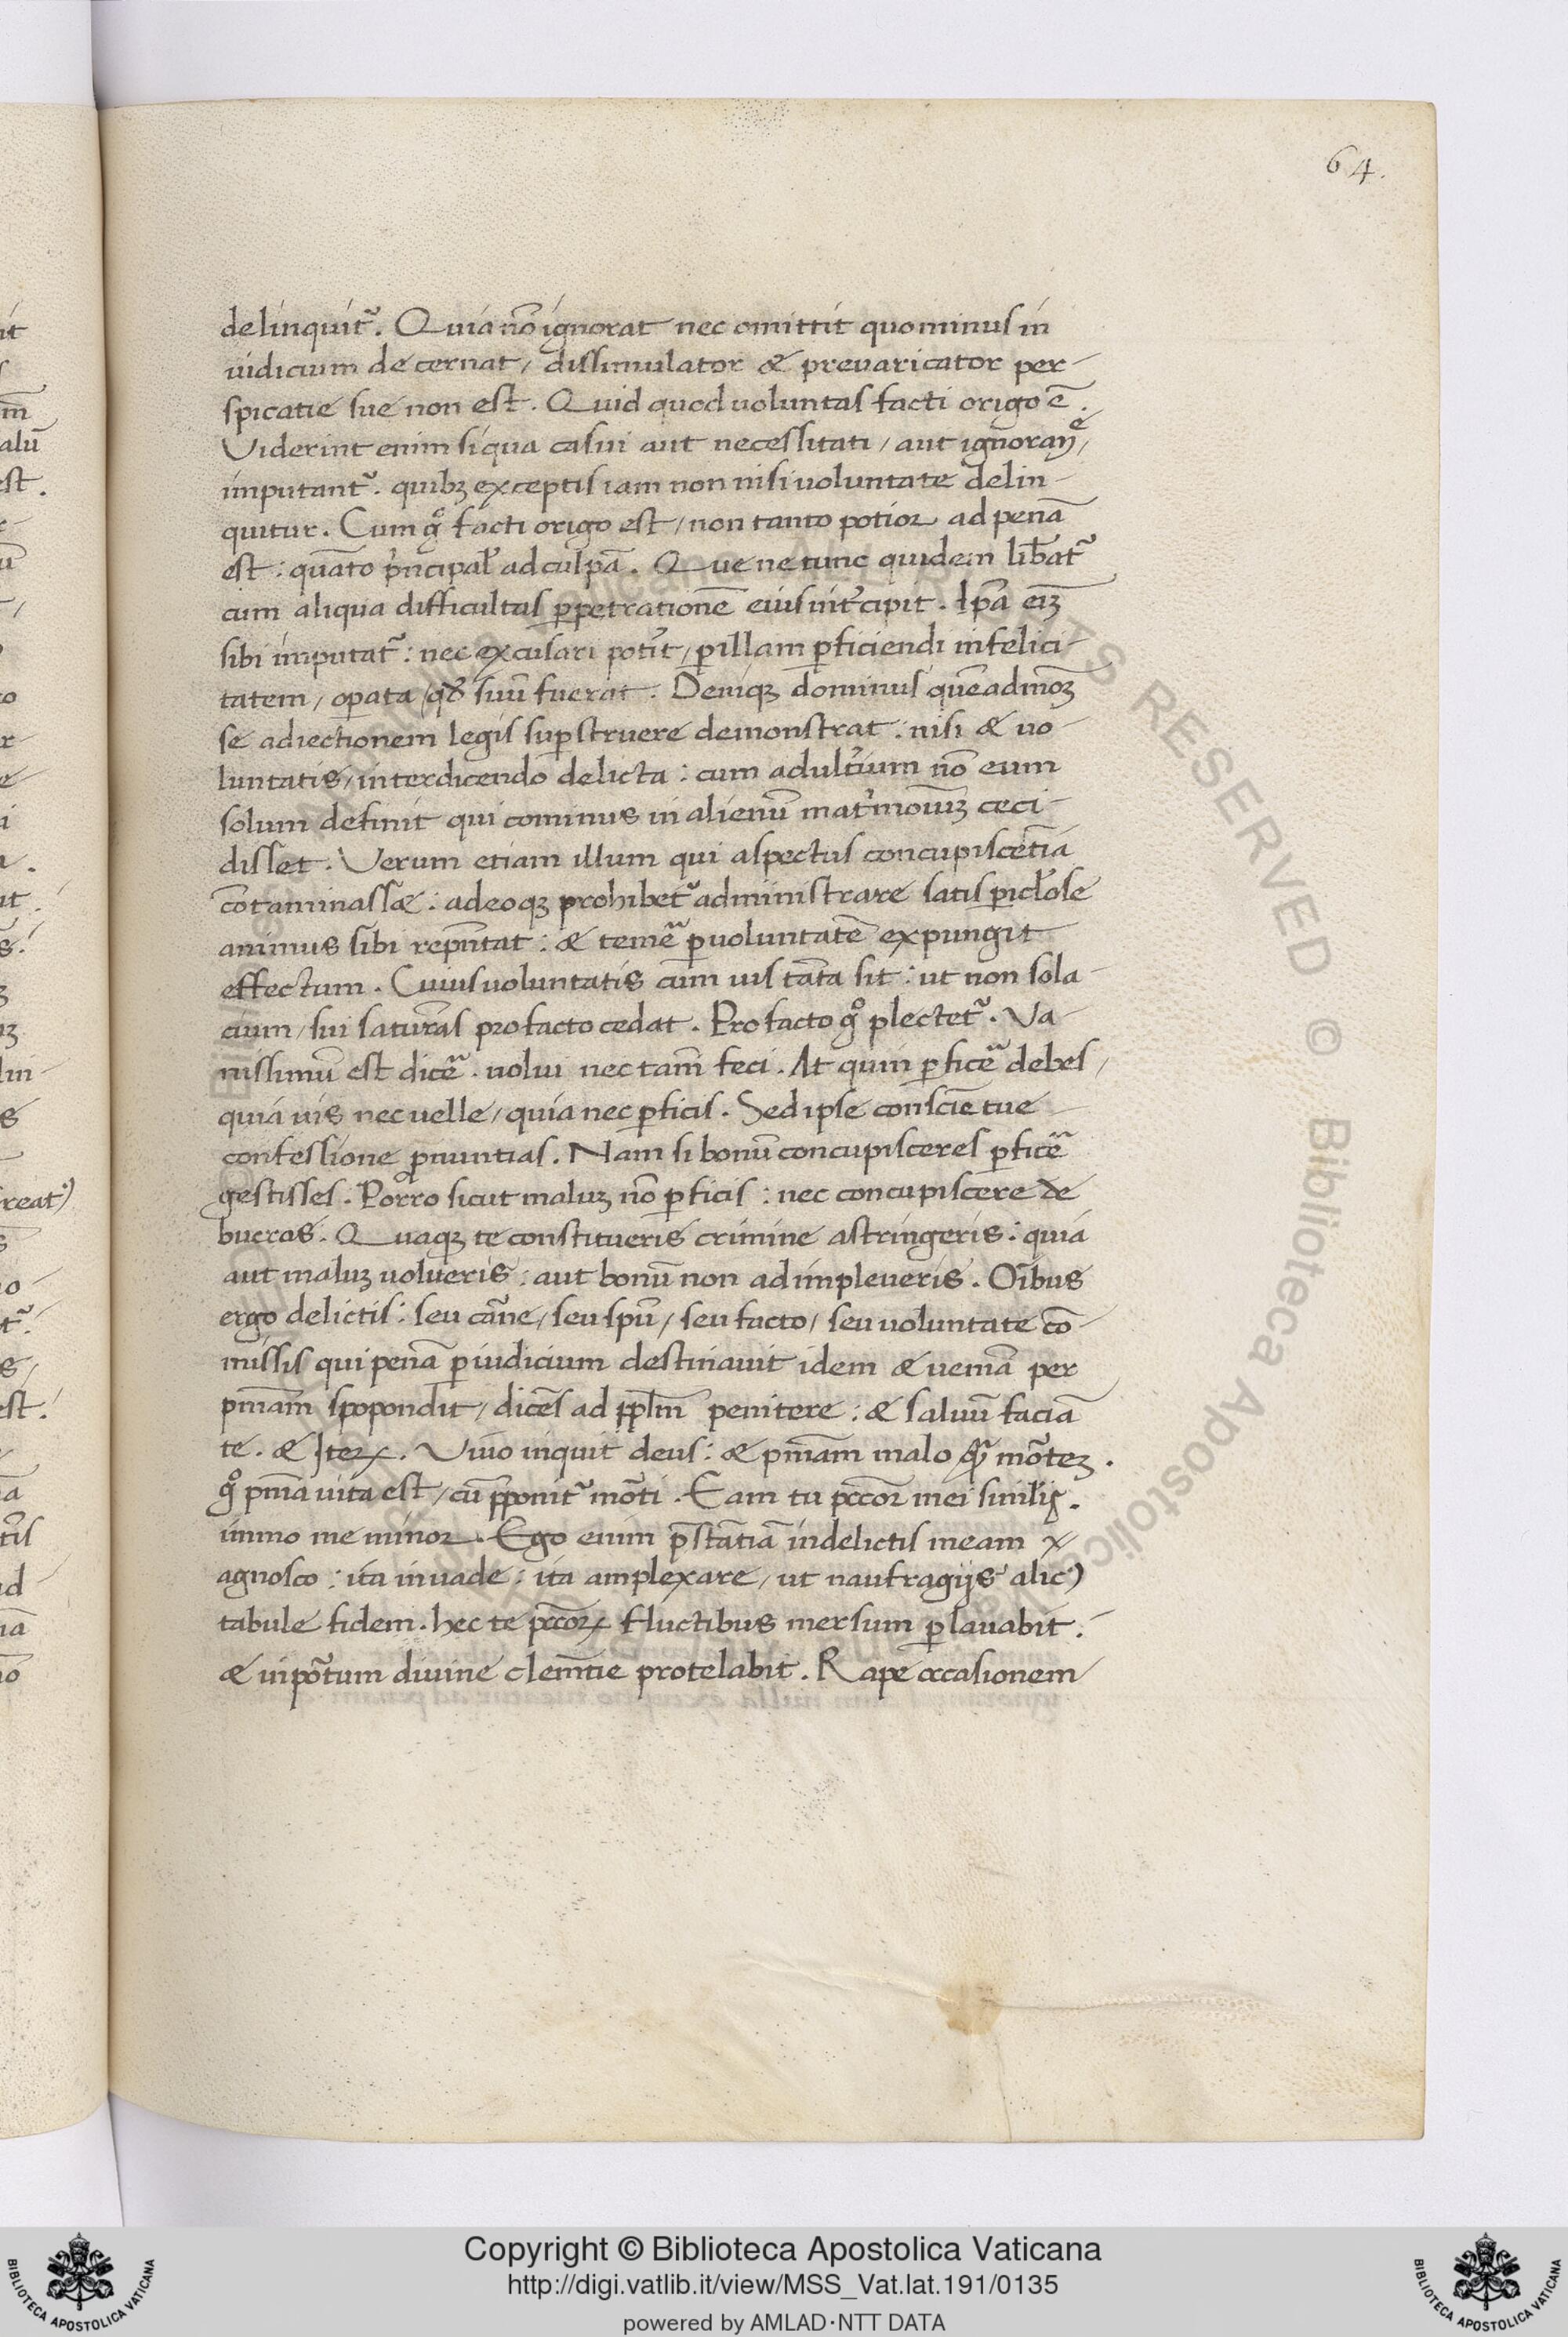 64.
delinquit᷑. Quia nō ignorat nec omittit quominus in
iudicium decernat / dissimulator & prevaricator per-
spicatie sue non est. Quid quod voluntas facti origo ē.
Viderint enim si qua casui aut necessitati / aut ignoran̄ /
imputant᷑. quibꝫ exceptis iam non nisi voluntate delin-
quitur. Cum gͦ facti origo est / non tanto potior ad penā
est : quāto pͥncipal̛ ad culpā. Que ne tunc quidem lib̄at᷑
cum aliqua difficultas ꝑpetrationē eius int̛cipit. Ip̄a eiꝫ
sibi imputat᷑ : nec excusari pot̛it / ꝑ illam ꝑficiendi infelici-
tatem / oꝑata qđ suū fuerat. Deniqꝫ dominus quēadmōꝫ
se adiectionem legis suꝑstruere demonstrat : nisi & vo-
luntatis / interdicendo delicta : cum adult̛ium nō eum
solum definit qui cominus in alienū mat̛moīuꝫ ceci-
disset. Verum etiam illum qui aspectus concupiscētia
cōtaminasset : adeoqꝫ prohibet᷑ administrare satis ꝑicl̛ose
animus sibi rep̄ntat : & temē ꝑ voluntatē expungit
effectum. Cuius voluntatis cum vis tāta sit : ut non sola-
cium / sui saturās pro facto cedat. Pro facto gͦ plectet᷑. Va-
nissimū est dicē. volui nec tam̄ feci. At quin ꝑficē debes /
quia vis nec velle / quia nec ꝑficis. Sed ipse consciētue
confessione ꝓnuntias. Nam si bonū concupisceres ꝑficē
gestisses. Porro sicut maluꝫ nō ꝑficis : nec concupiscere de
bueras. Quaqꝫ te constitueris crimine astringeris : quia
aut maluꝫ volueris : aut bonū non adimpleveris. Oībus
ergo delictis : seu cāne / seu spū / seu facto / seu voluntate cō-
missis qui penā ꝑ iudicium destinavit idem & veniā per
pn̄iam spopondit / dicēs ad pp̄lm penitere : & salvū faciā
te. & Iteꝝ. Vivo inquit deus : & pn̄iam malo q̄ mōteꝫ.
gͦ pn̄ia vita est / cū p̄ponit᷑ mōti. Eam tu pccōr mei similis.
immo me minor. Ego enim p̄stātiā in delictis meam
agnosco : ita invade : ita amplexare / ut naufragijs alic̛
tabule fidem. hec te pccōꝝ fluctibus mersum ꝑlavabit.
& in pōtum divine clemētie protelabit. Rape occasionem